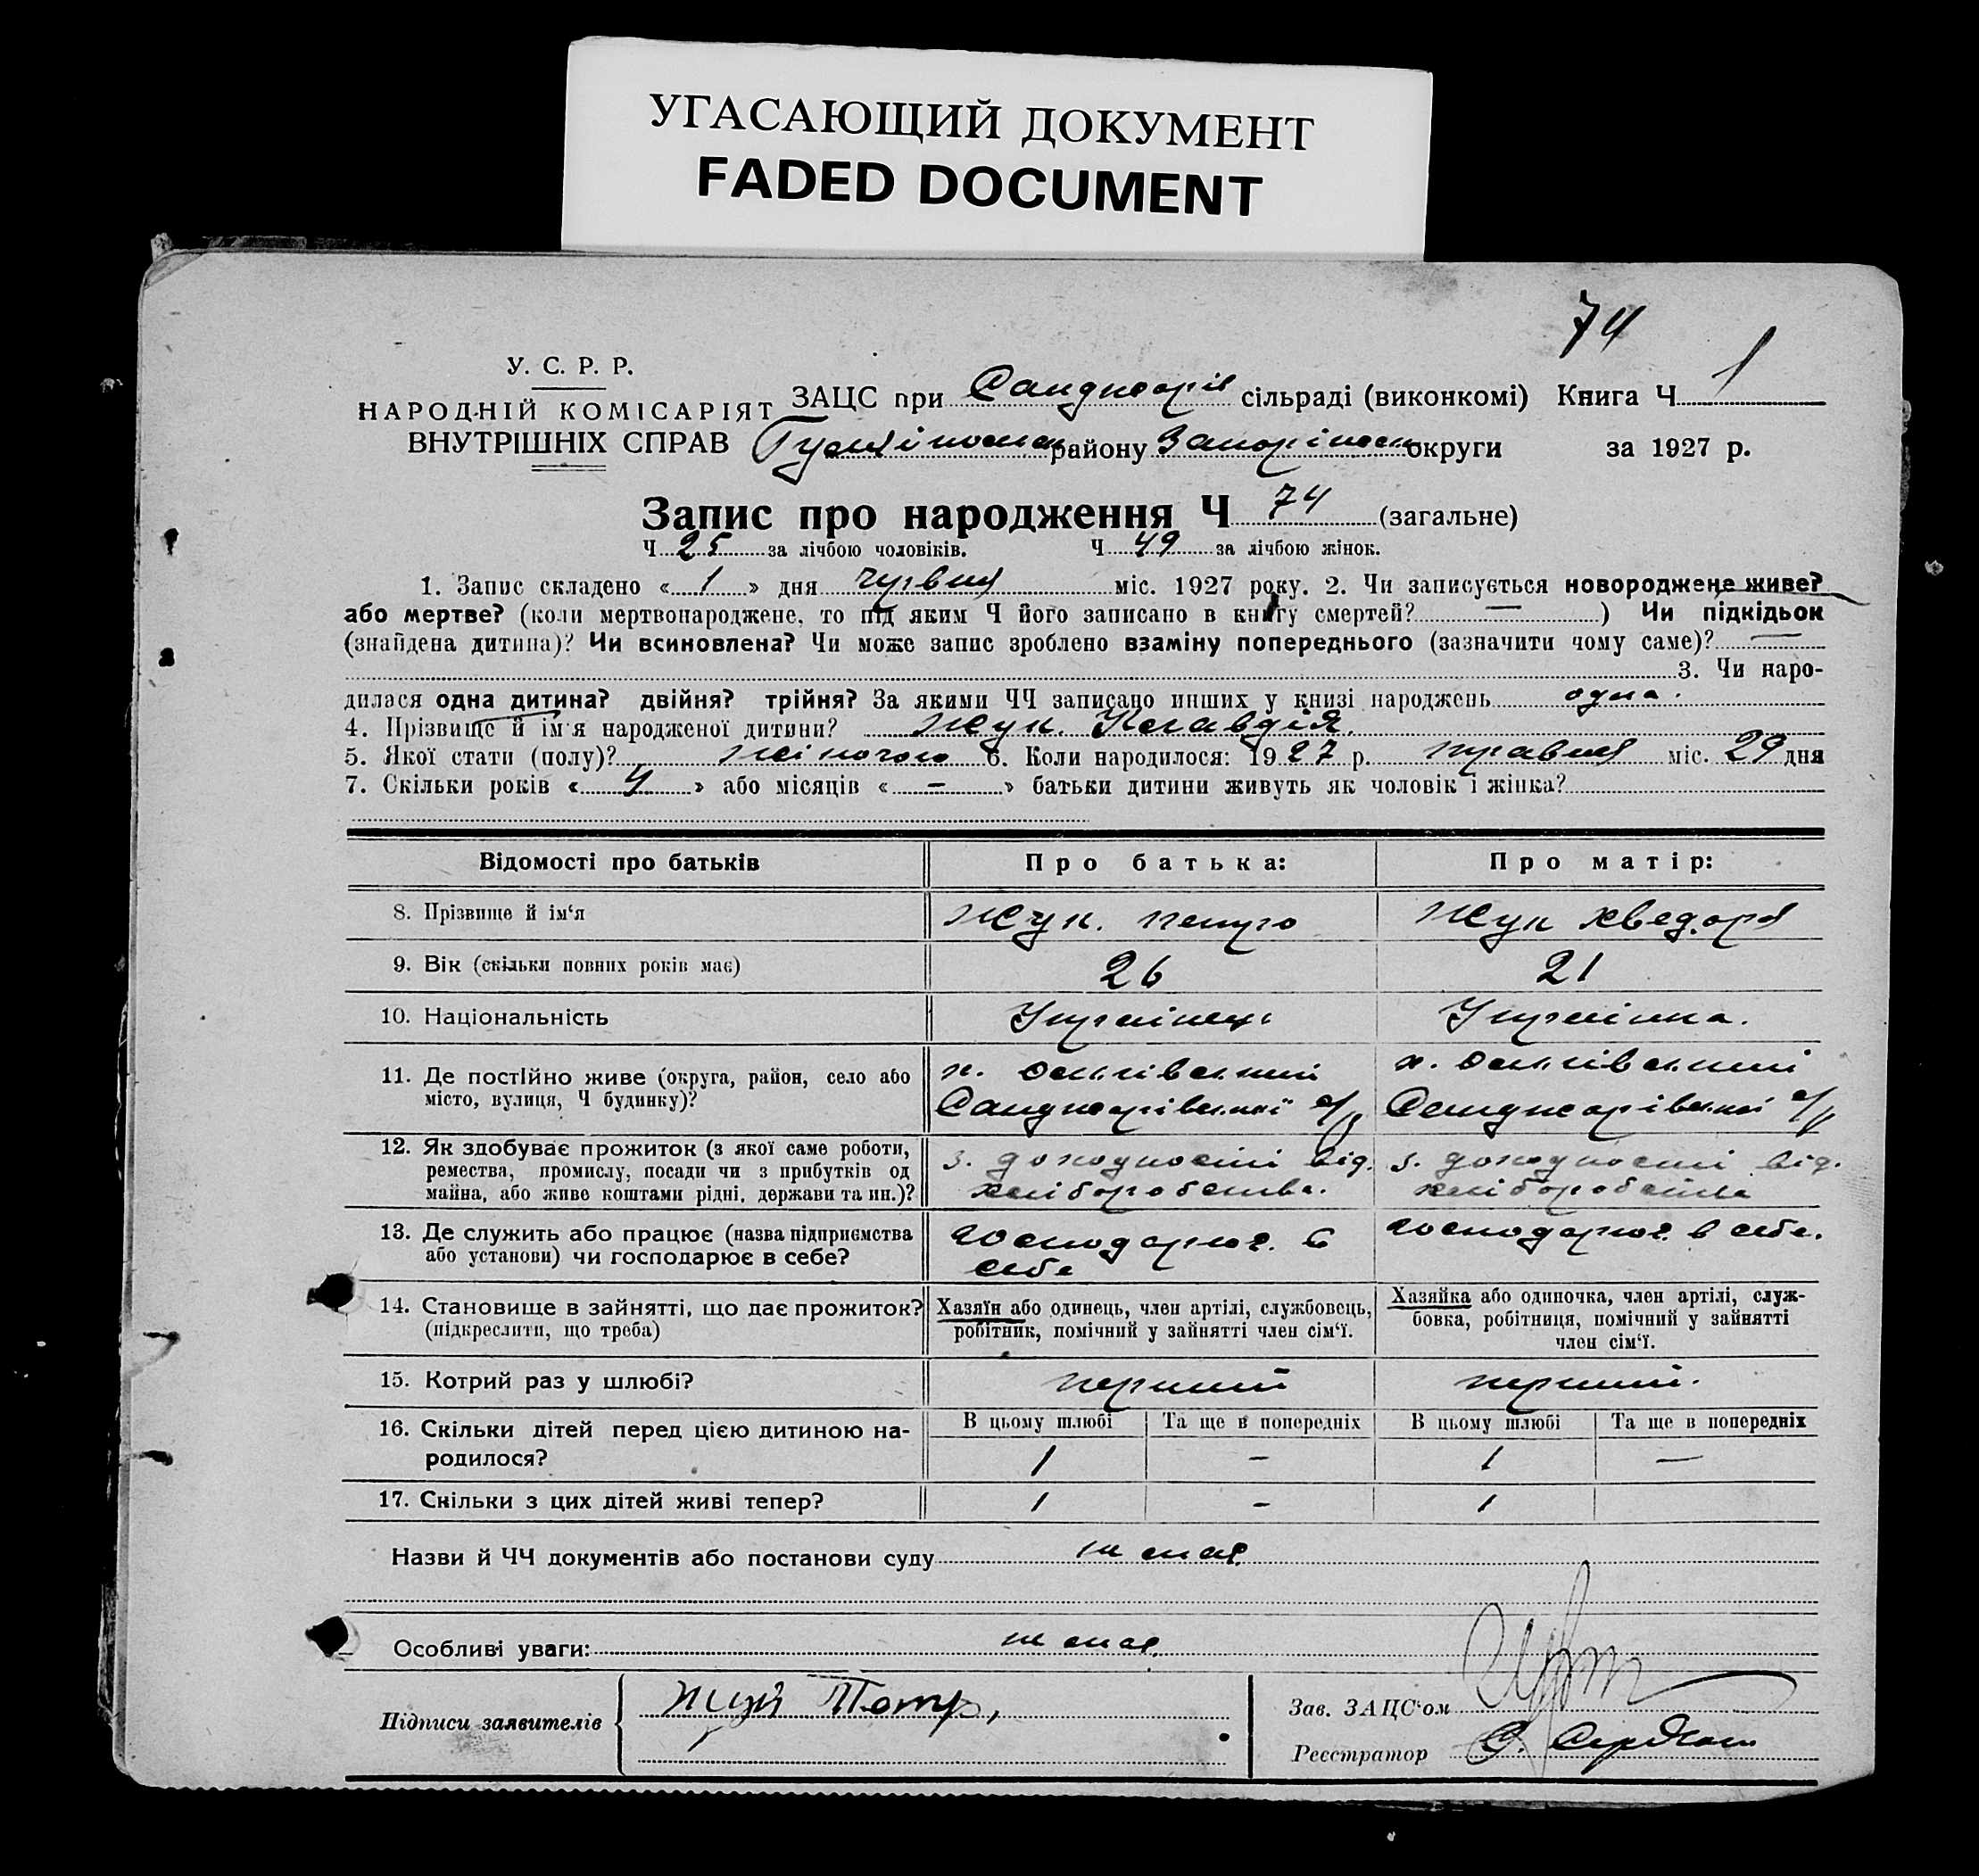 УГАСАЮЩИЙ ДОКУМЕНТ
FADED DOCUMENT
74
У. С. Р. Р.
НАРОДНІЙ КОМІСАРІЯТ
ВНУТРІШНІХ СПРАВ
ЗАЦС при Санджарів сільраді (виконкомі) Книга Ч 1
району Запоріжськ округи за 1927 р.
Запис про народження Ч 74 (загальне)
Ч 25 за лічбою чоловіків. Ч 49 за лічбою жінок.
1. Запис складено « 1 » дня червня міс. 1927 року. 2. Чи записується новороджене живе?
або мертве? (коли мертвонароджене, то під яким Ч його записано в книгу смертей? — ) Чи підкідьок
(знайдена дитина)? Чи всиновлена? Чи може запис зроблено взаміну попереднього (зазначити чому саме)? —
3. Чи наро-
дилася одна дитина? двійня? трійня? За якими ЧЧ записано инших у книзі народжень одна.
4. Прізвище й ім'я народженої дитини? Жук. Клавдія.
5. Якої стати (полу)? жіночого 6. Коли народилося: 1927 р. травня міс. 29 дня
7. Скільки років « 4 » або місяців « – » батьки дитини живуть як чоловік і жінка?
Відомості про батьків Про батька: Про матір:
8. Прізвище й ім'я Жук. петро Жук хведоря
9. Вік (скільки повних років має) 26 21
10. Національність Українець Українка.
11. Де постійно живе (округа, район, село або
місто, вулиця, Ч будинку)?
х. х.
Санджарівської с/р Санджарівської с/р
12. Як здобуває прожиток (з якої саме роботи,
ремества, промислу, посади чи з прибутків од
майна, або живе коштами рідні, держави та ин.)?
з. доходности від. з. доходности від.
хліборобства. хліборобства
13. Де служить або працює (назва підприємства
або установи) чи господарює в себе?
господарює. в
себе
господарює в себе.
14. Становище в зайнятті, що дає прожиток?
(підкреслити, що треба)
Хазяїн або одинець, член артілі, службовець,
робітник, помічний у зайнятті член сім'ї.
Хазяйка або одиночка, член артілі, служ-
бовка, робітниця, помічний у зайнятті
член сім'ї.
15. Котрий раз у шлюбі? перший перший.
16. Скільки дітей перед цією дитиною на-
родилося?
В цьому шлюбі Та ще в попередніх В цьому шлюбі Та ще в попередніх
1 – 1 —
17. Скільки з цих дітей живі тепер? 1 – 1
Назви й ЧЧ документів або постанови суду не має.
Особливі уваги: не має.
Підписи заявителів Жук Петр,
Зав. ЗАЦС'ом
Реєстратор